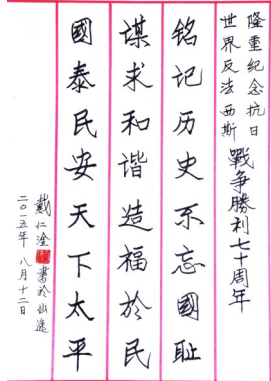 隆重纪念抗日
世界反法西斯
戰争勝利七十周年
铭记历史不忘國耻
谋求和谐造福於民
國泰民安天下太平
戴仁淦書於仙遊
二〇一五年八月十二日